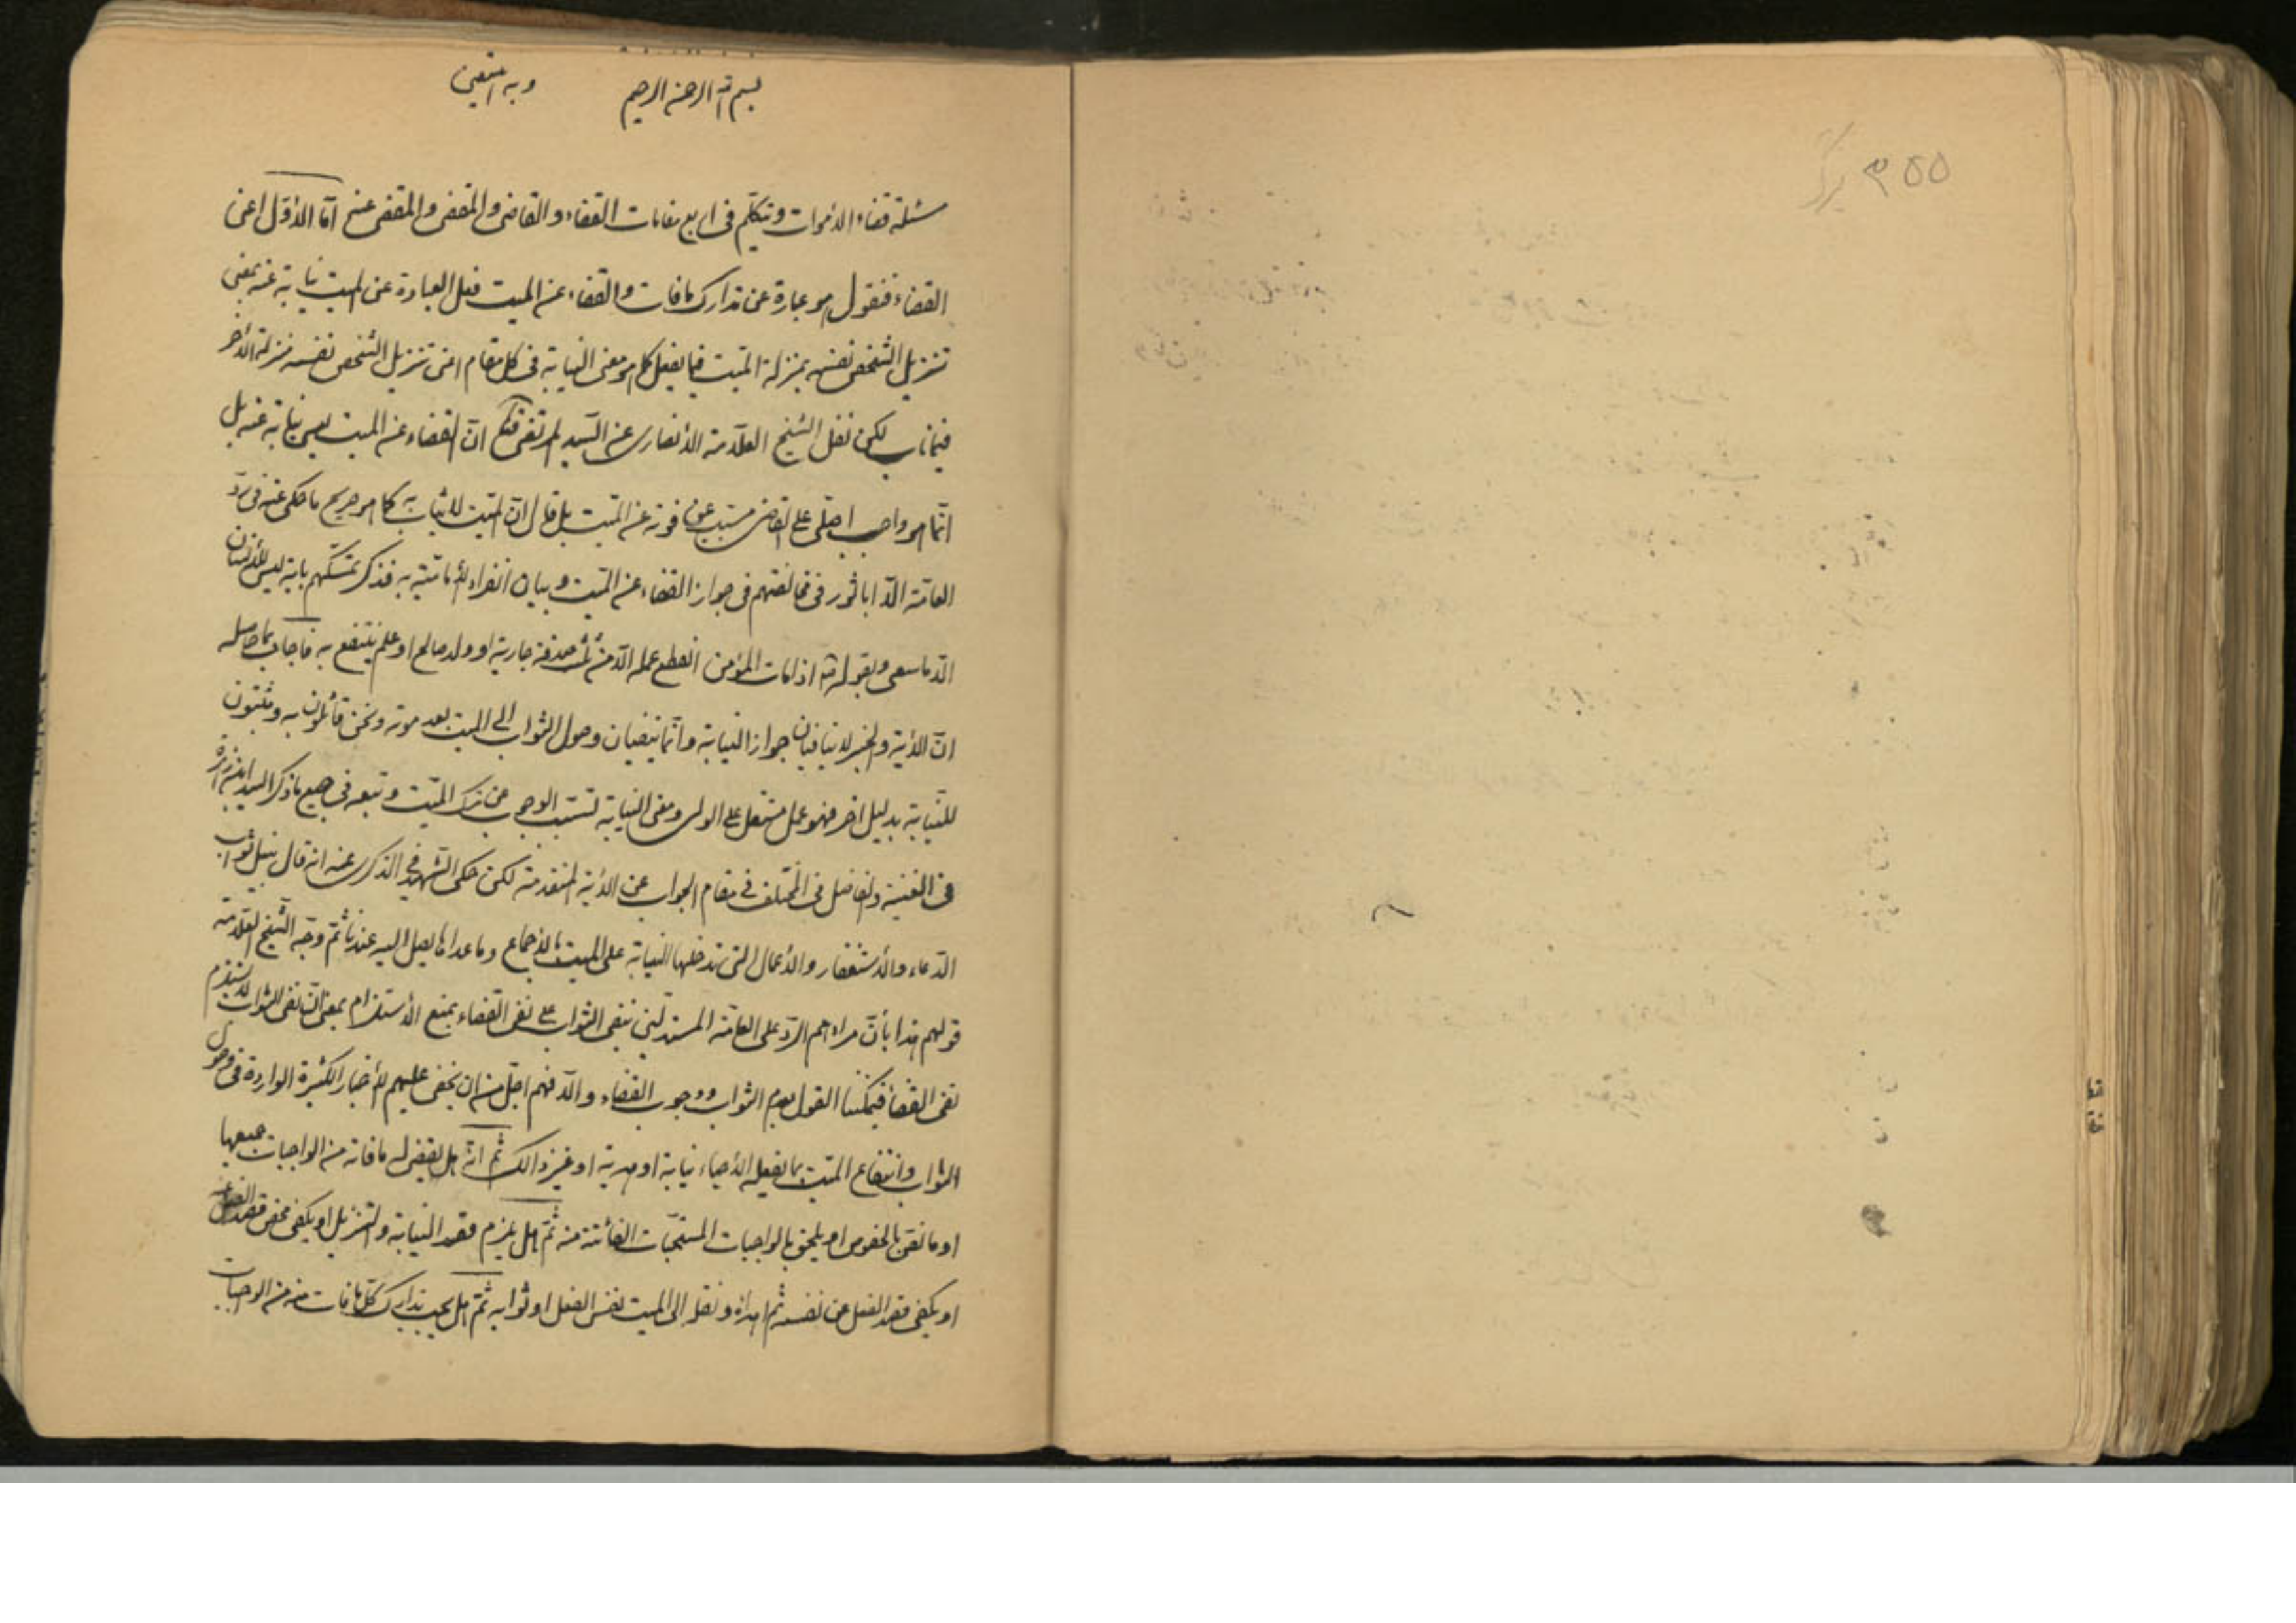 ۳۵۵ برگ
بسم الله الرحمن الرحيم وبه نستعين
مسئلة قضاء الأموات ونتكلم في اربع مقامات القضاء والقاضي والمقضي والمقضي عنه امّا الأوّل اعني
القضاء فنقول هو عبارة عن تدارك ما فات والقضاء عن الميت فعل العبادة عن الميت نيابة عنه بمعنى
تنزيل الشخص نفسه بمنزلة الميّت فيما يفعل كما هو معنى النيابة في كل مقام اعني تنزيل الشخص نفسه منزلة الأخر
فيما ناب لكن نقل الشيخ العلّامة الأنصاري عن السّيد المرتضى انّ القضاء عن الميت ليس نيابة عنه بل
انّما هو واجب اصلي على القاضي مسبّب عن فوته عن الميّت بل قال انّ الميّت لا يثاب به كما هو صريح ما حكى عنه في ردّ
العامّة الّا ابا ثور في مخالفتهم في جواز القضاء عن الميّت وبيان انفراد الأماميّة به فذكر تمسّكهم باية ليس للأنسان
الّا ما سعى وبقوله اذا مات المؤمن انقطع عمله الّا من ثلث صدقة جارية او ولد صالح او علم ينتفع به فاجاب بما حاصله
انّ الأية والخبر لا ينافيان جواز النيابة وانّما ينفيان وصول الثواب الى الميت بعد موته ونحن قائلون به ومثبتون
للنّيابة بدليل اخر فهو عمل مستقل على الولي ومعنى النيابة تسبّب الوجوب عن ترك الميّت وتبعه في جميع ما ذكر السيد ابن زهرة
في الغنية والفاضل في المختلف في مقام الجواب عن الأية المتقدمة لكن حكى الشهيد في الذكرى عنه انه قال بنيل ثواب
الدّعاء والأستغفار والأعمال التي تدخلها النيابة على الميت بالأجماع وما عداها يصل اليه عندنا ثمّ وجّه الشّيخ العلّامة
قولهم هذا بأنّ مرادهم الردّ على العامّة المستدلّين بنفي الثواب على نفي القضاء بمنع الأستلزام بمعنى انّ نفى الثواب لا يستلزم
نفى القضاء فيمكننا القول بعدم الثواب ووجوب القضاء والّا فهم اجلّ من ان يخفى عليهم الأخبار الكثيرة الواردة في وصول
الثواب وانتفاع الميّت بما يفعله الأحياء نيابة او هدية او غير ذالك ثمّ انّه هل يقضي له ما فاته من الواجبات جميعها
او ما نصّ بالخصوص او يلحق بالواجبات المستحبّات الفائتة منه ثمّ هل يلزم قصد النيابة والتنزيل او يكفي محض قصد
او يكفي قصد الفعل عن نفسه ثم اهداؤه ونقله الى الميت نفس الفعل او ثوابه ثمّ هل يجب تدارك كلّ ما فات منه من الواجبات